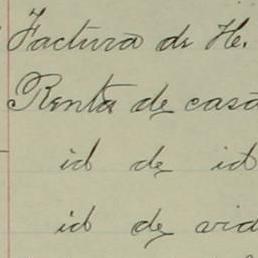 Factura de H.
Renta de casa
id de id
id de